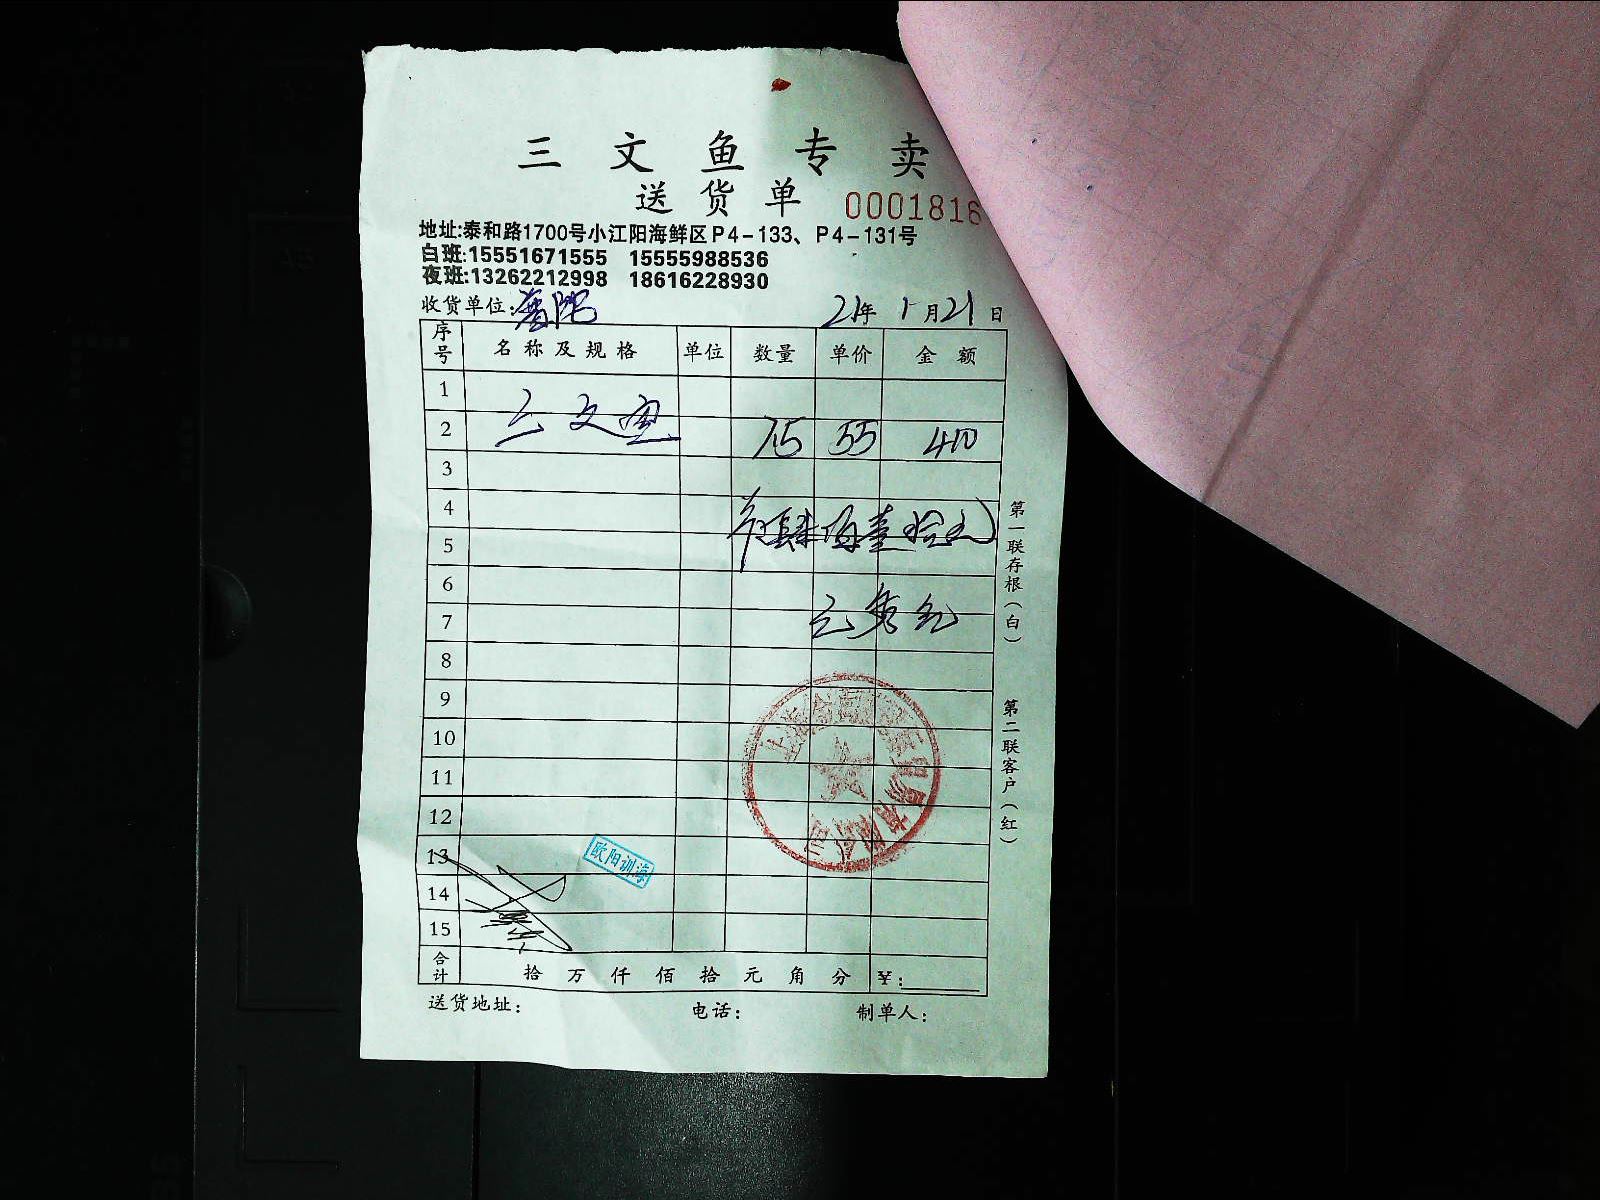 三文鱼专卖
送货单 0001816
地址:泰和路1700号小江阳海鲜区P4-133、P4-131号
白班:15551671555 15555988536
夜班:13262212998 18616228930
收货单位:普陀 21年1月21日
序号 名称及规格 单位 数量 单价 金额
1
2 三文鱼 7.5 55 410
3
4
5 肆佰壹拾元
6
7
8
9
10
11
12
13
14
15
欧阳训海
合计 拾万仟佰拾元角分 ¥:
送货地址: 电话: 制单人:
第一联存根(白)
第二联客户(红)